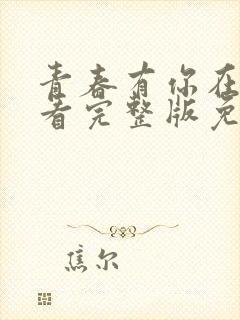 青春有你在
看完整版免
焦尔